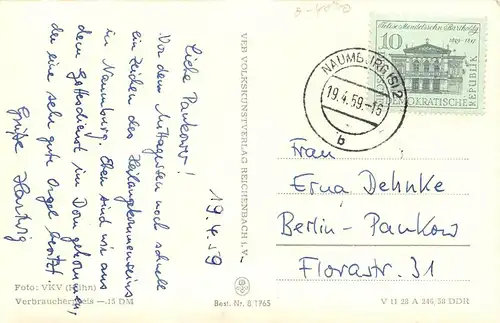 Liebe Pankower!
Vor dem Mittagessen noch schnell
ein Zeichen des
in Naumburg. Eben sind wir aus
dem Gottesdienst im Dom gekommen,
der eine sehr gute Orgel besitzt
Grüße Hartwig
19.4.59
Foto: VKV (Hahn)
Verbraucherpreis —.15 DM
VEB VOLKSKUNSTVERLAG REICHENBACH i. V.
Best. Nr. 8/1965
Felix Mendelssohn Bartholdy
10
1809-1847
DEMOKRATISCHE
REPUBLIK
NAUMBURG (S) 2
19.4.59-15
b
Frau
Erna Dehnke
Berlin-Pankow
Florastr. 31
V 11 28 A 246/58 DDR